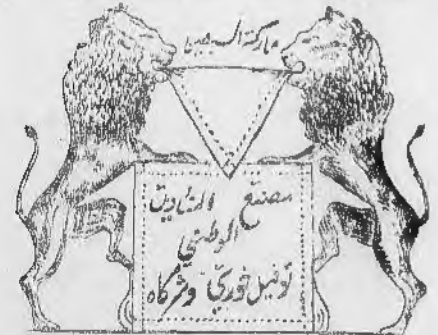 ماركة السبعين
مصنع الصناديق
الوطني
نوفيل خوري وشركاه